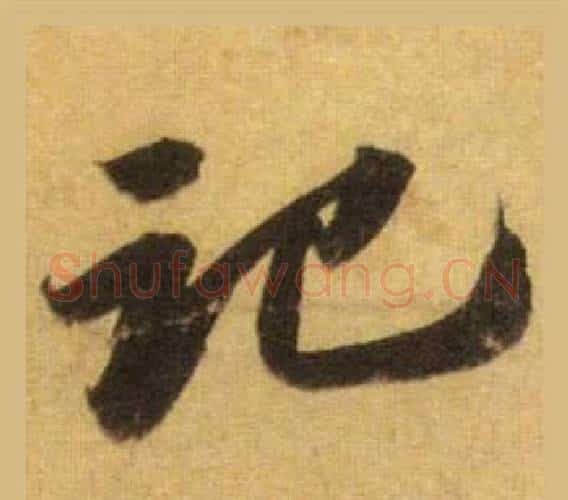 记
Shufawang.CN